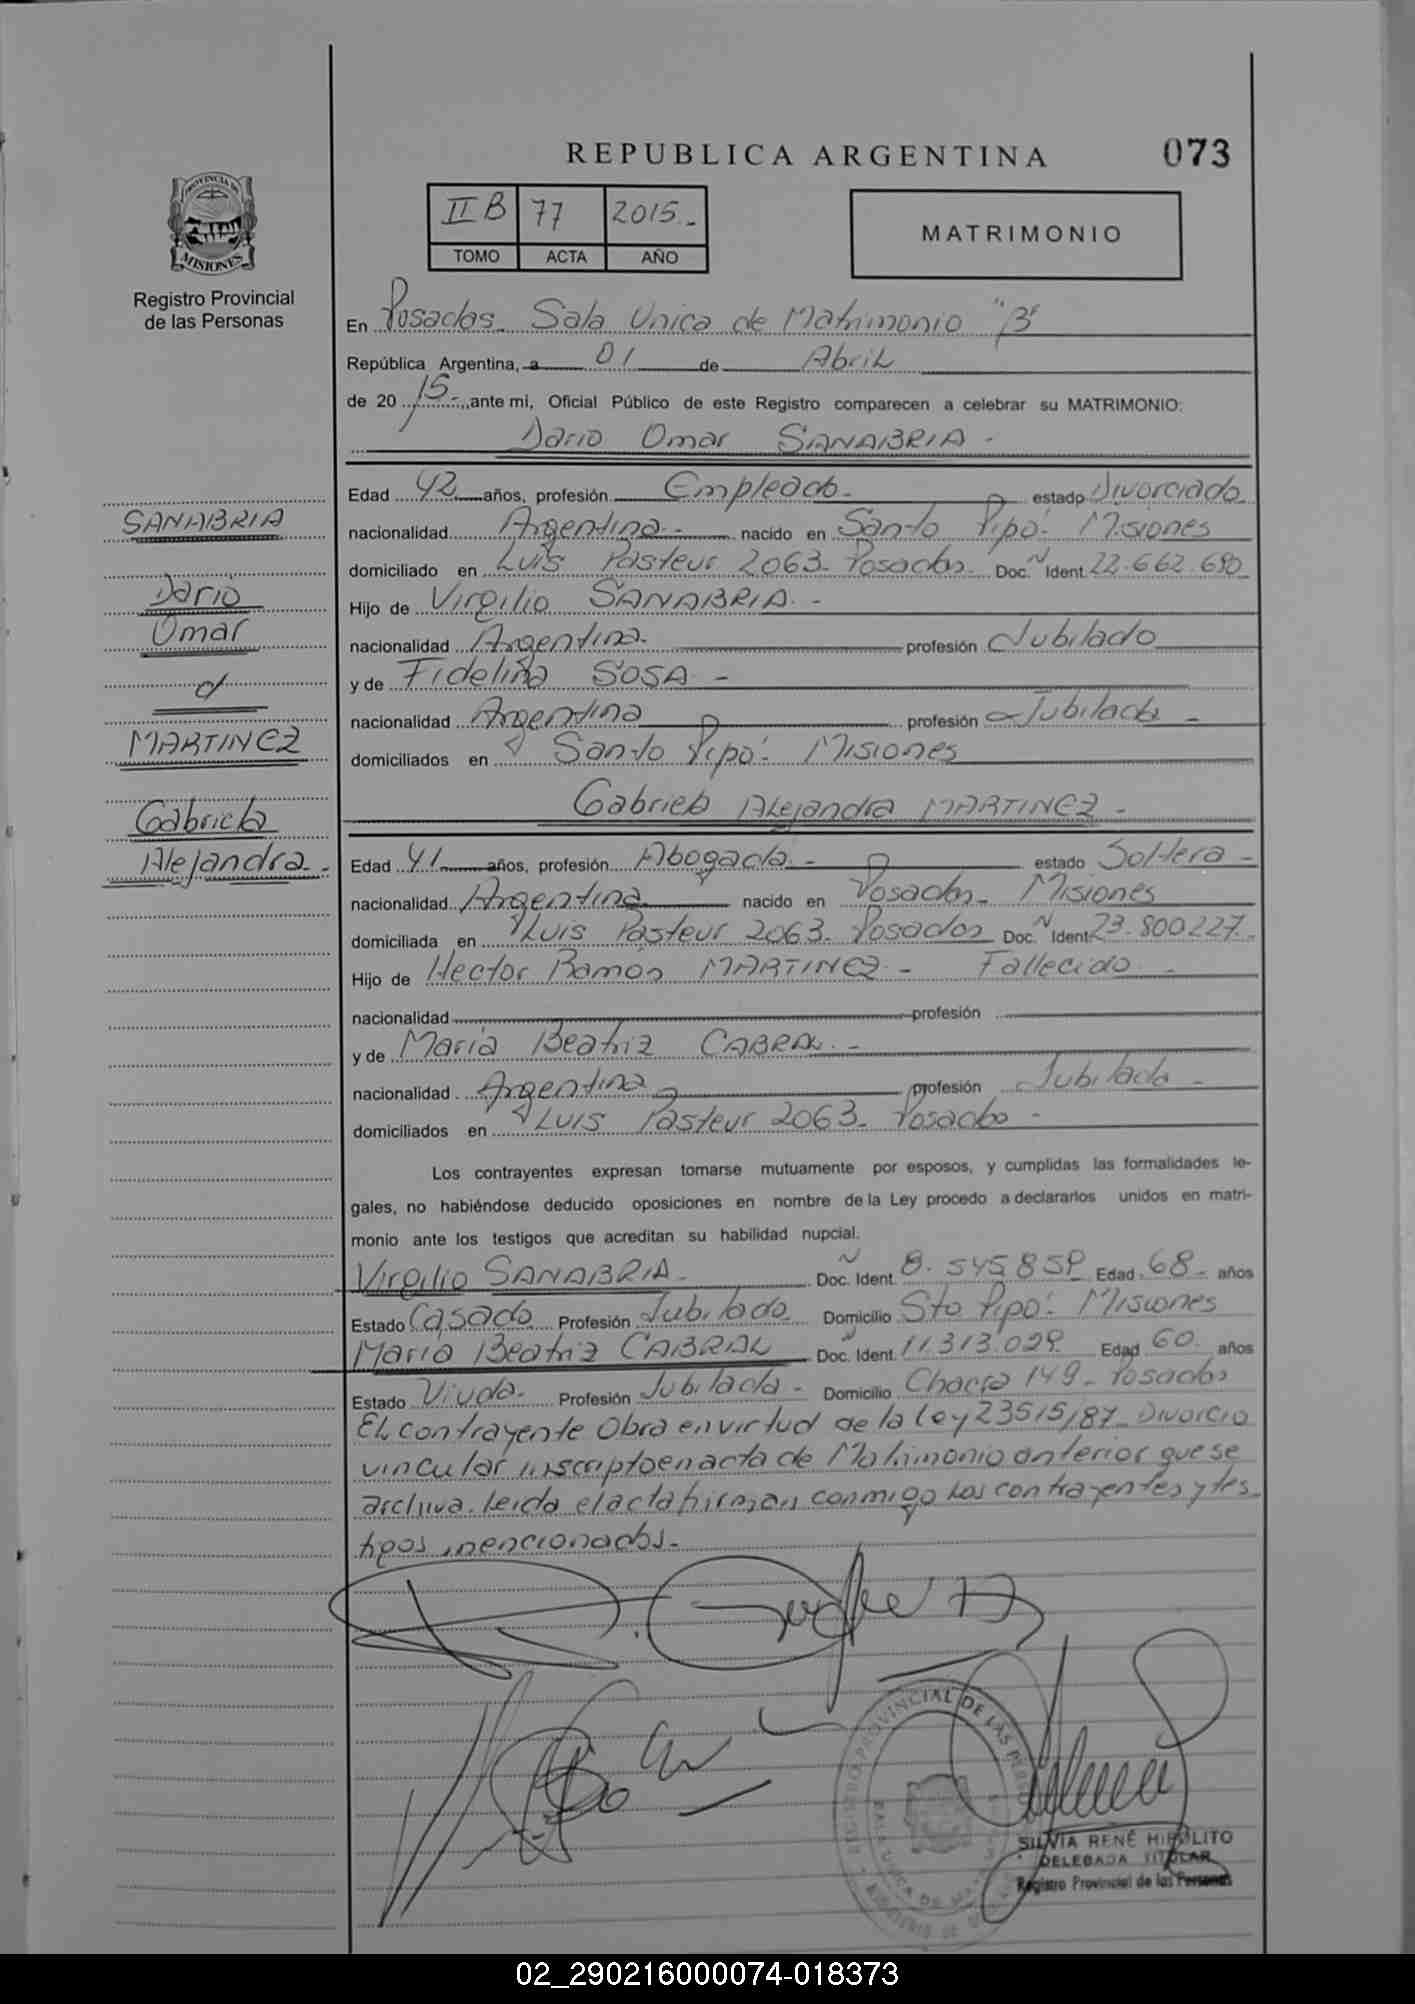 REPUBLICA ARGENTINA 073
PROVINCIA DE
MISIONES
Registro Provincial
de las Personas
II B 77 2015.-
TOMO ACTA AÑO
MATRIMONIO
En Posadas. Sala Unica de Matrimonio "B"
República Argentina, a 01 de Abril
de 20 15-, ante mi, Oficial Público de este Registro comparecen a celebrar su MATRIMONIO:
Dario Omar SANABRIA -
Edad 42 años, profesión Empleado- estado Divorciado
nacionalidad Argentina- nacido en Santo Pipó- Misiones
domiciliado en Luis Pasteur 2063- Posadas- Doc. N Ident. 22.662.690
Hijo de Virgilio SANABRIA -
nacionalidad Argentina- profesión Jubilado
y de Fidelina SOSA -
nacionalidad Argentina profesión Jubilada -
domiciliados en Santo Pipó- Misiones
Gabriela Alejandra MARTINEZ -
Edad 41 años, profesión Abogada- estado Soltera -
nacionalidad Argentina nacido en Posadas- Misiones
domiciliada en Luis Pasteur 2063- Posadas Doc. N Ident. 23.800227-
Hijo de Hector Ramón MARTINEZ - Fallecido -
nacionalidad profesión
y de Maria Beatriz CABRAL -
nacionalidad Argentina profesión Jubilada -
domiciliados en Luis Pasteur 2063- Posadas -
SANABRIA
Dario
Omar
c/
MARTINEZ
Gabriela
Alejandra -
Los contrayentes expresan tomarse mutuamente por esposos, y cumplidas las formalidades le-
gales, no habiéndose deducido oposiciones en nombre de la Ley procedo a declararlos unidos en matri-
monio ante los testigos que acreditan su habilidad nupcial.
Virgilio SANABRIA- Doc. N Ident. 8.545859 Edad 68- años
Estado Casado Profesión Jubilado Domicilio Sto Pipó- Misiones
Maria Beatriz CABRAL Doc. N Ident. 11.313.029 Edad 60 años
Estado Viuda- Profesión Jubilada - Domicilio Chacra 149- Posadas
El contrayente Obra en virtud de la Ley 23515/87- Divorcio
vincular inscripto en acta de Matrimonio anterior que se
archiva. Leida el acta firman conmigo los contrayentes y tes-
tigos mencionados-
REGISTRO PROVINCIAL DE LAS
SILVIA RENÉ HIPÓLITO
DELEGADA TITULAR
Registro Provincial de las Personas
02_290216000074-018373